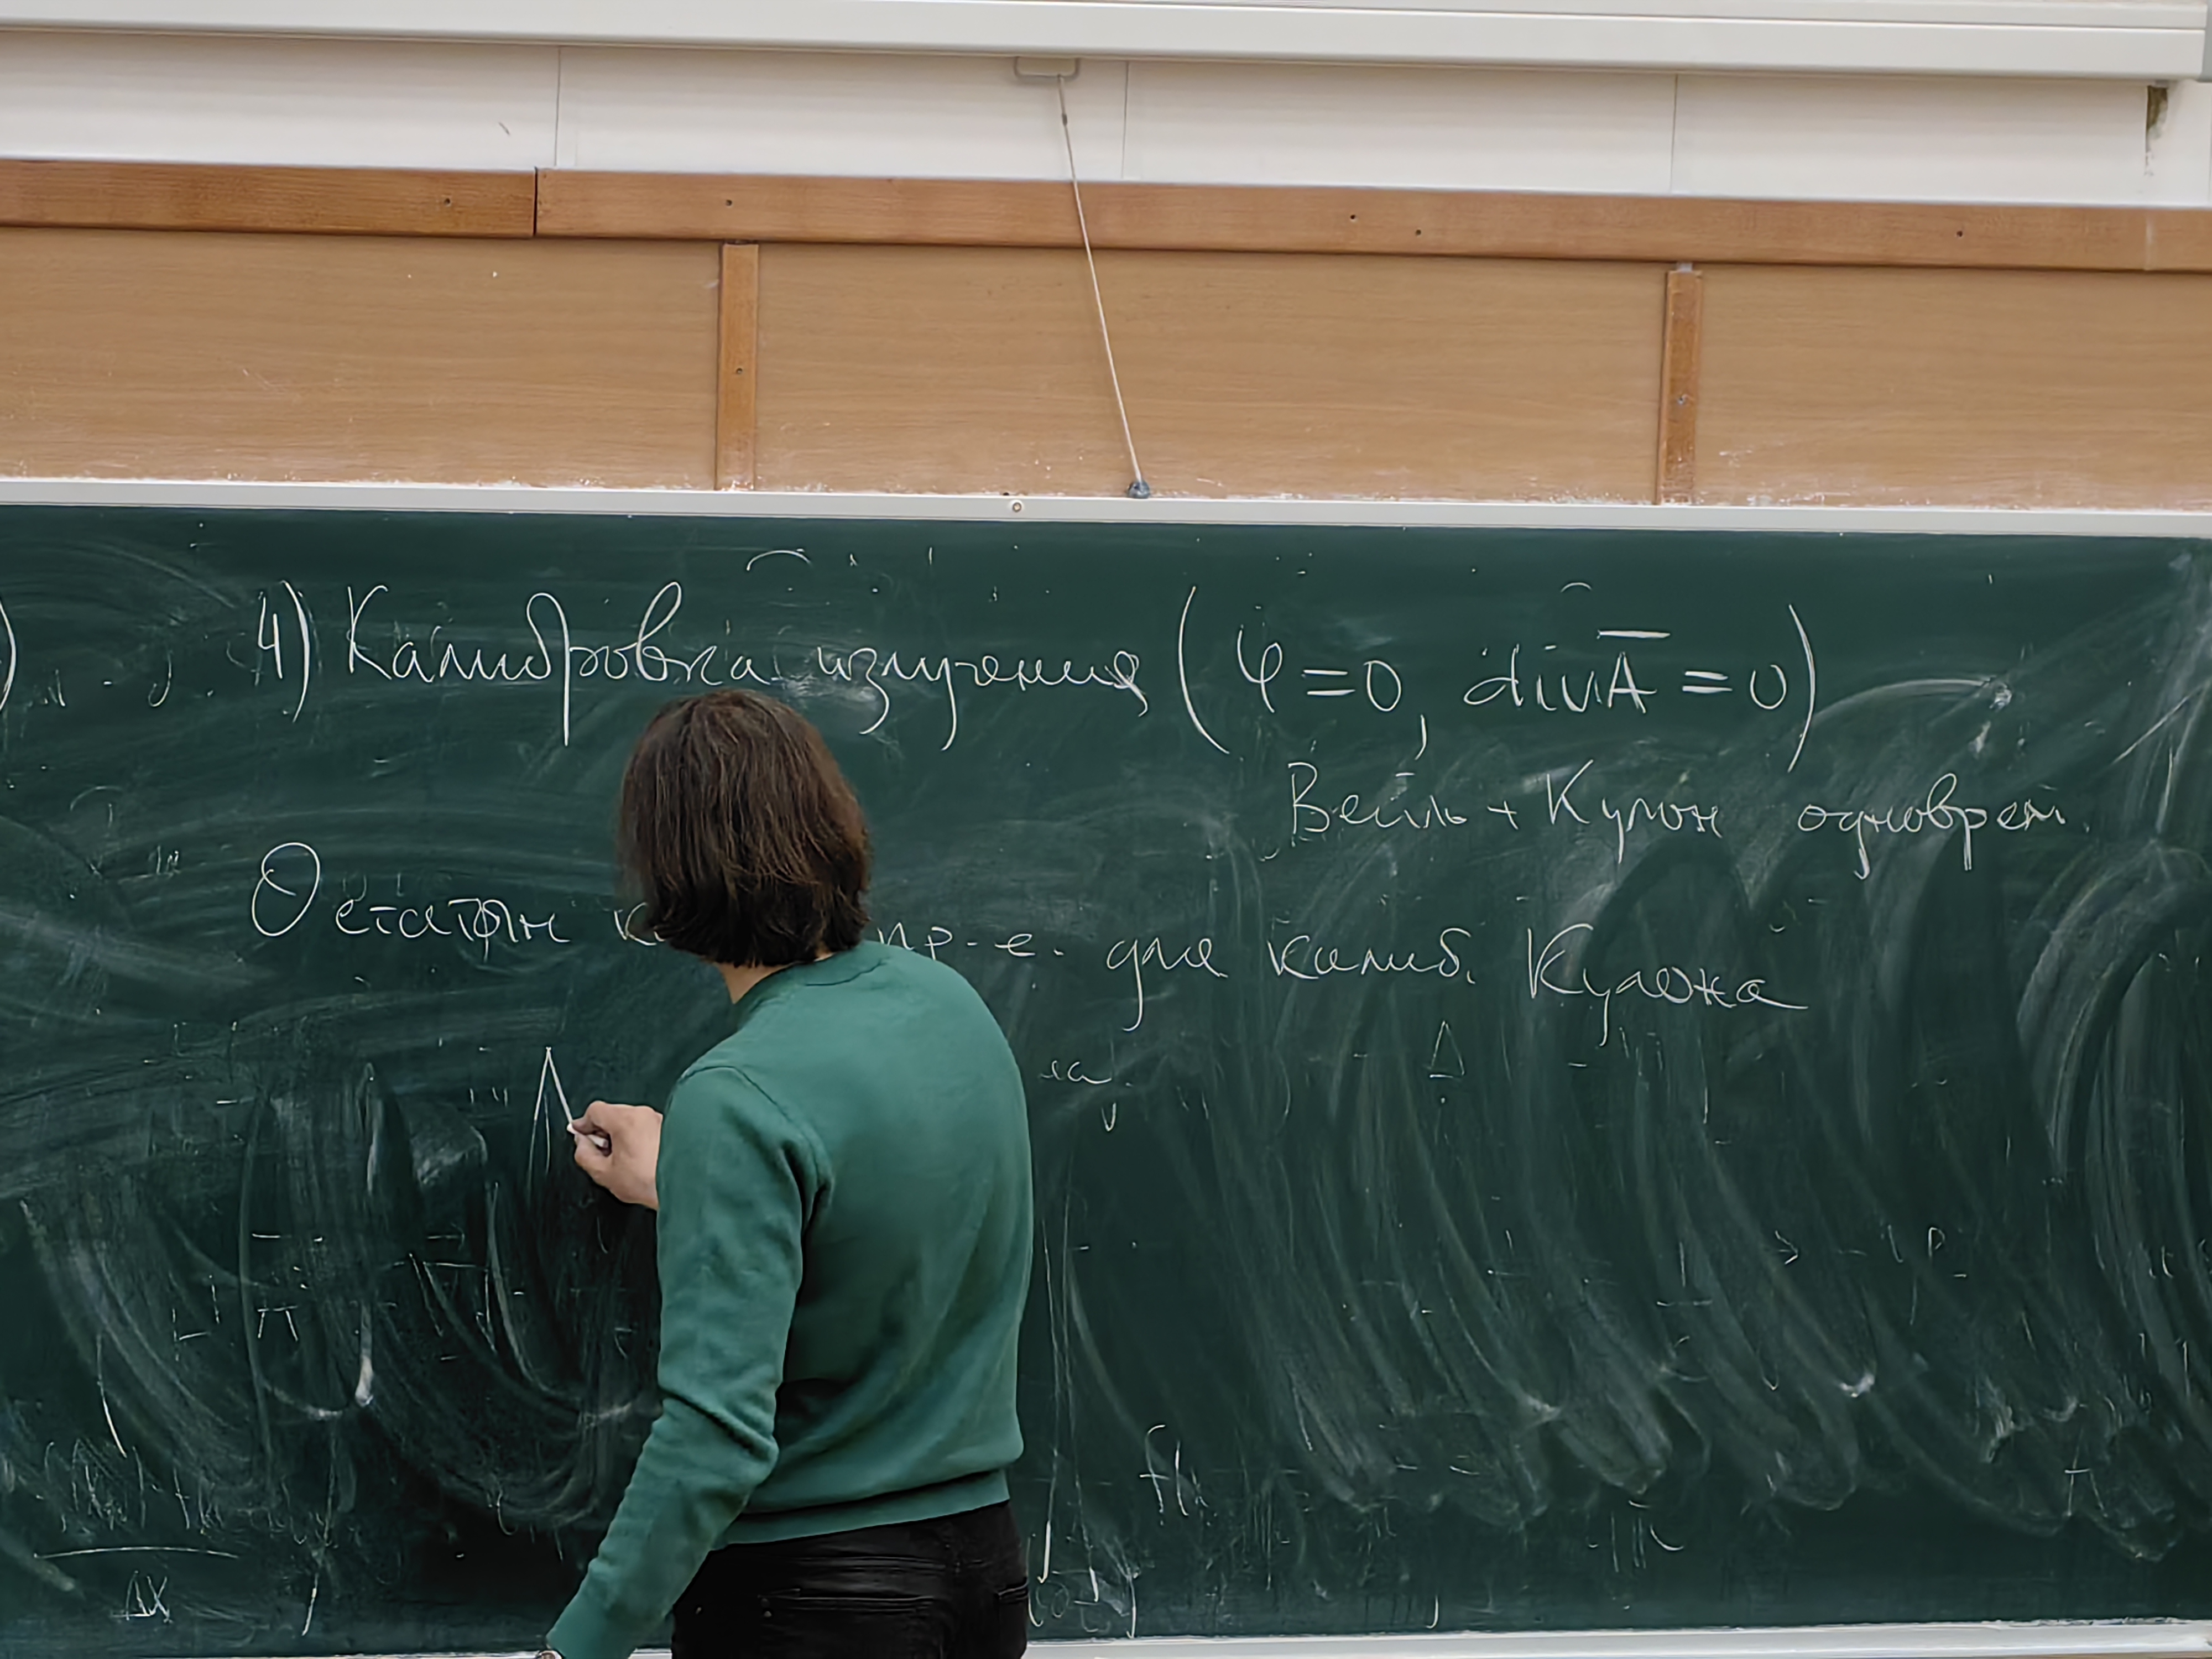 4) Калибровка излучения ( φ = 0, div A̅ = 0 )
Вейль + Кулон одноврем.
Остаточн пр-е. для калиб. Кулона
ΔX